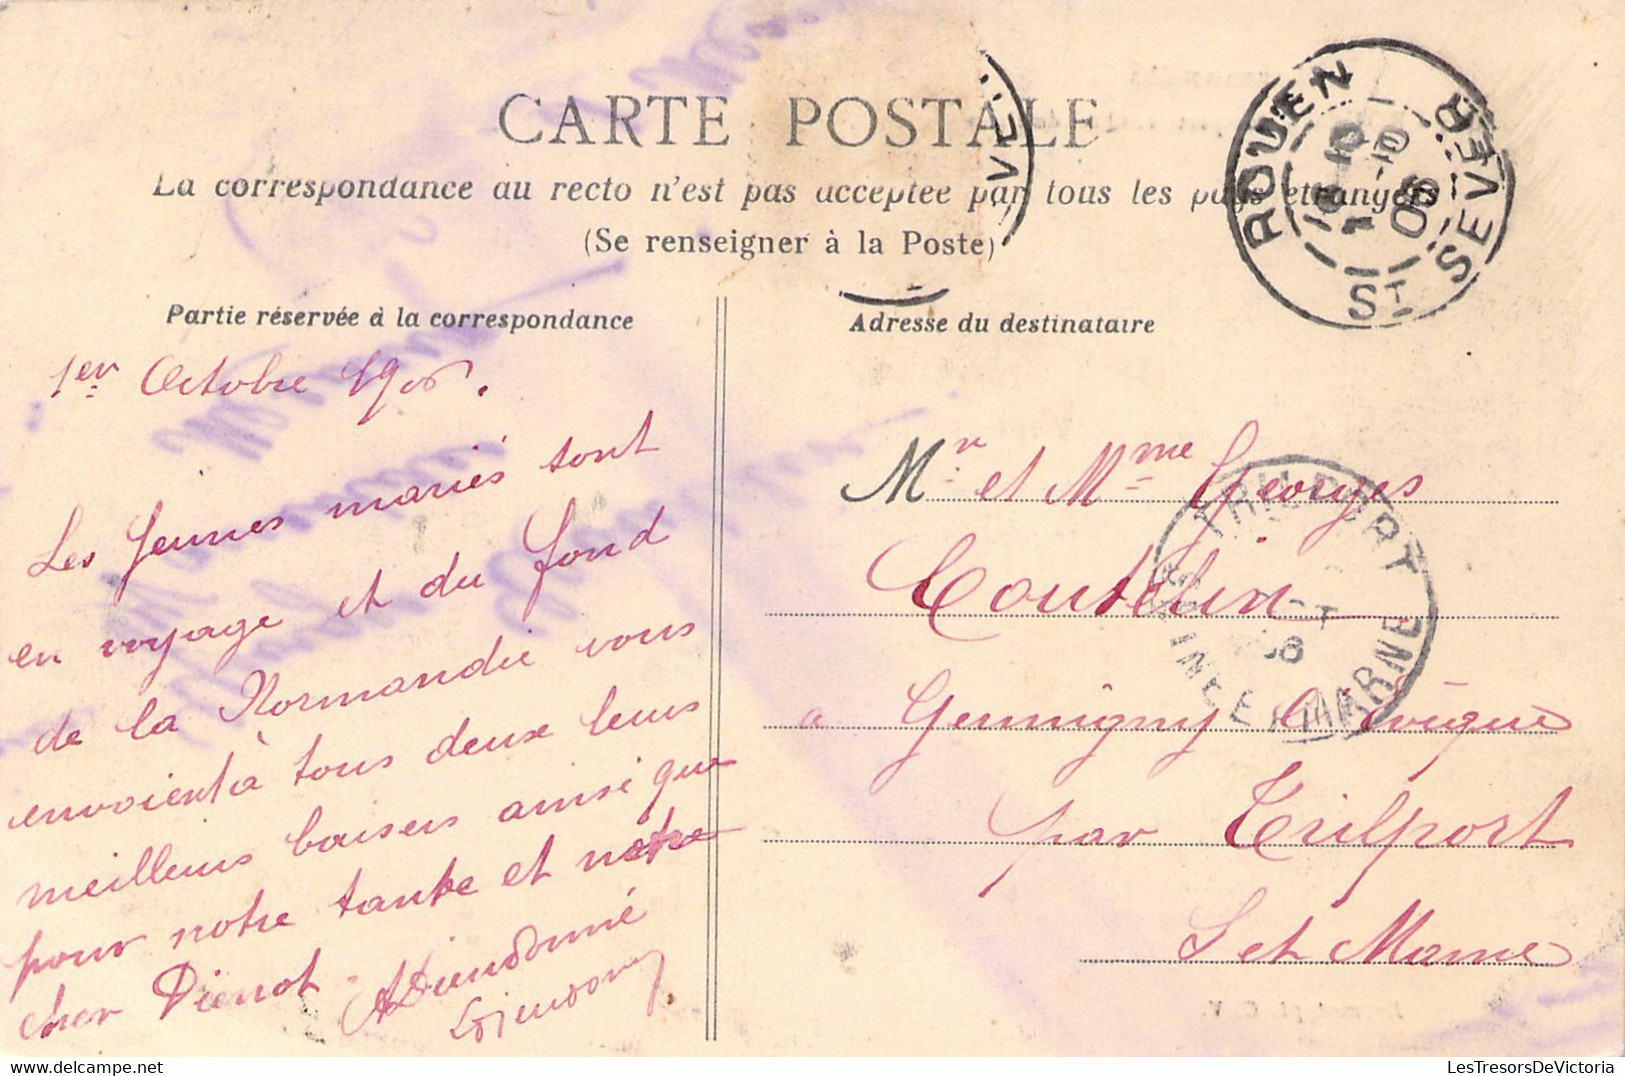 CARTE POSTALE
La correspondance au recto n'est pas acceptée par tous les pays étrangers
(Se renseigner à la Poste)
ROUEN ST SEVER
10 06
Partie réservée à la correspondance
1er Octobre 1906.
Les Jeunes mariés sont
en voyage et du fond
de la Normandie vous
envoient à tous deux leurs
meilleurs baisers ainsi que
pour notre tante et notre
cher Pierrot.
A Dieudonné
Adresse du destinataire
Mr et Mme Georges
Coutelin
a Germigny L'évêque
par Trilport
S et Marne
TRILPORT
SEINE ET MARNE
LesTresorsDeVictoria